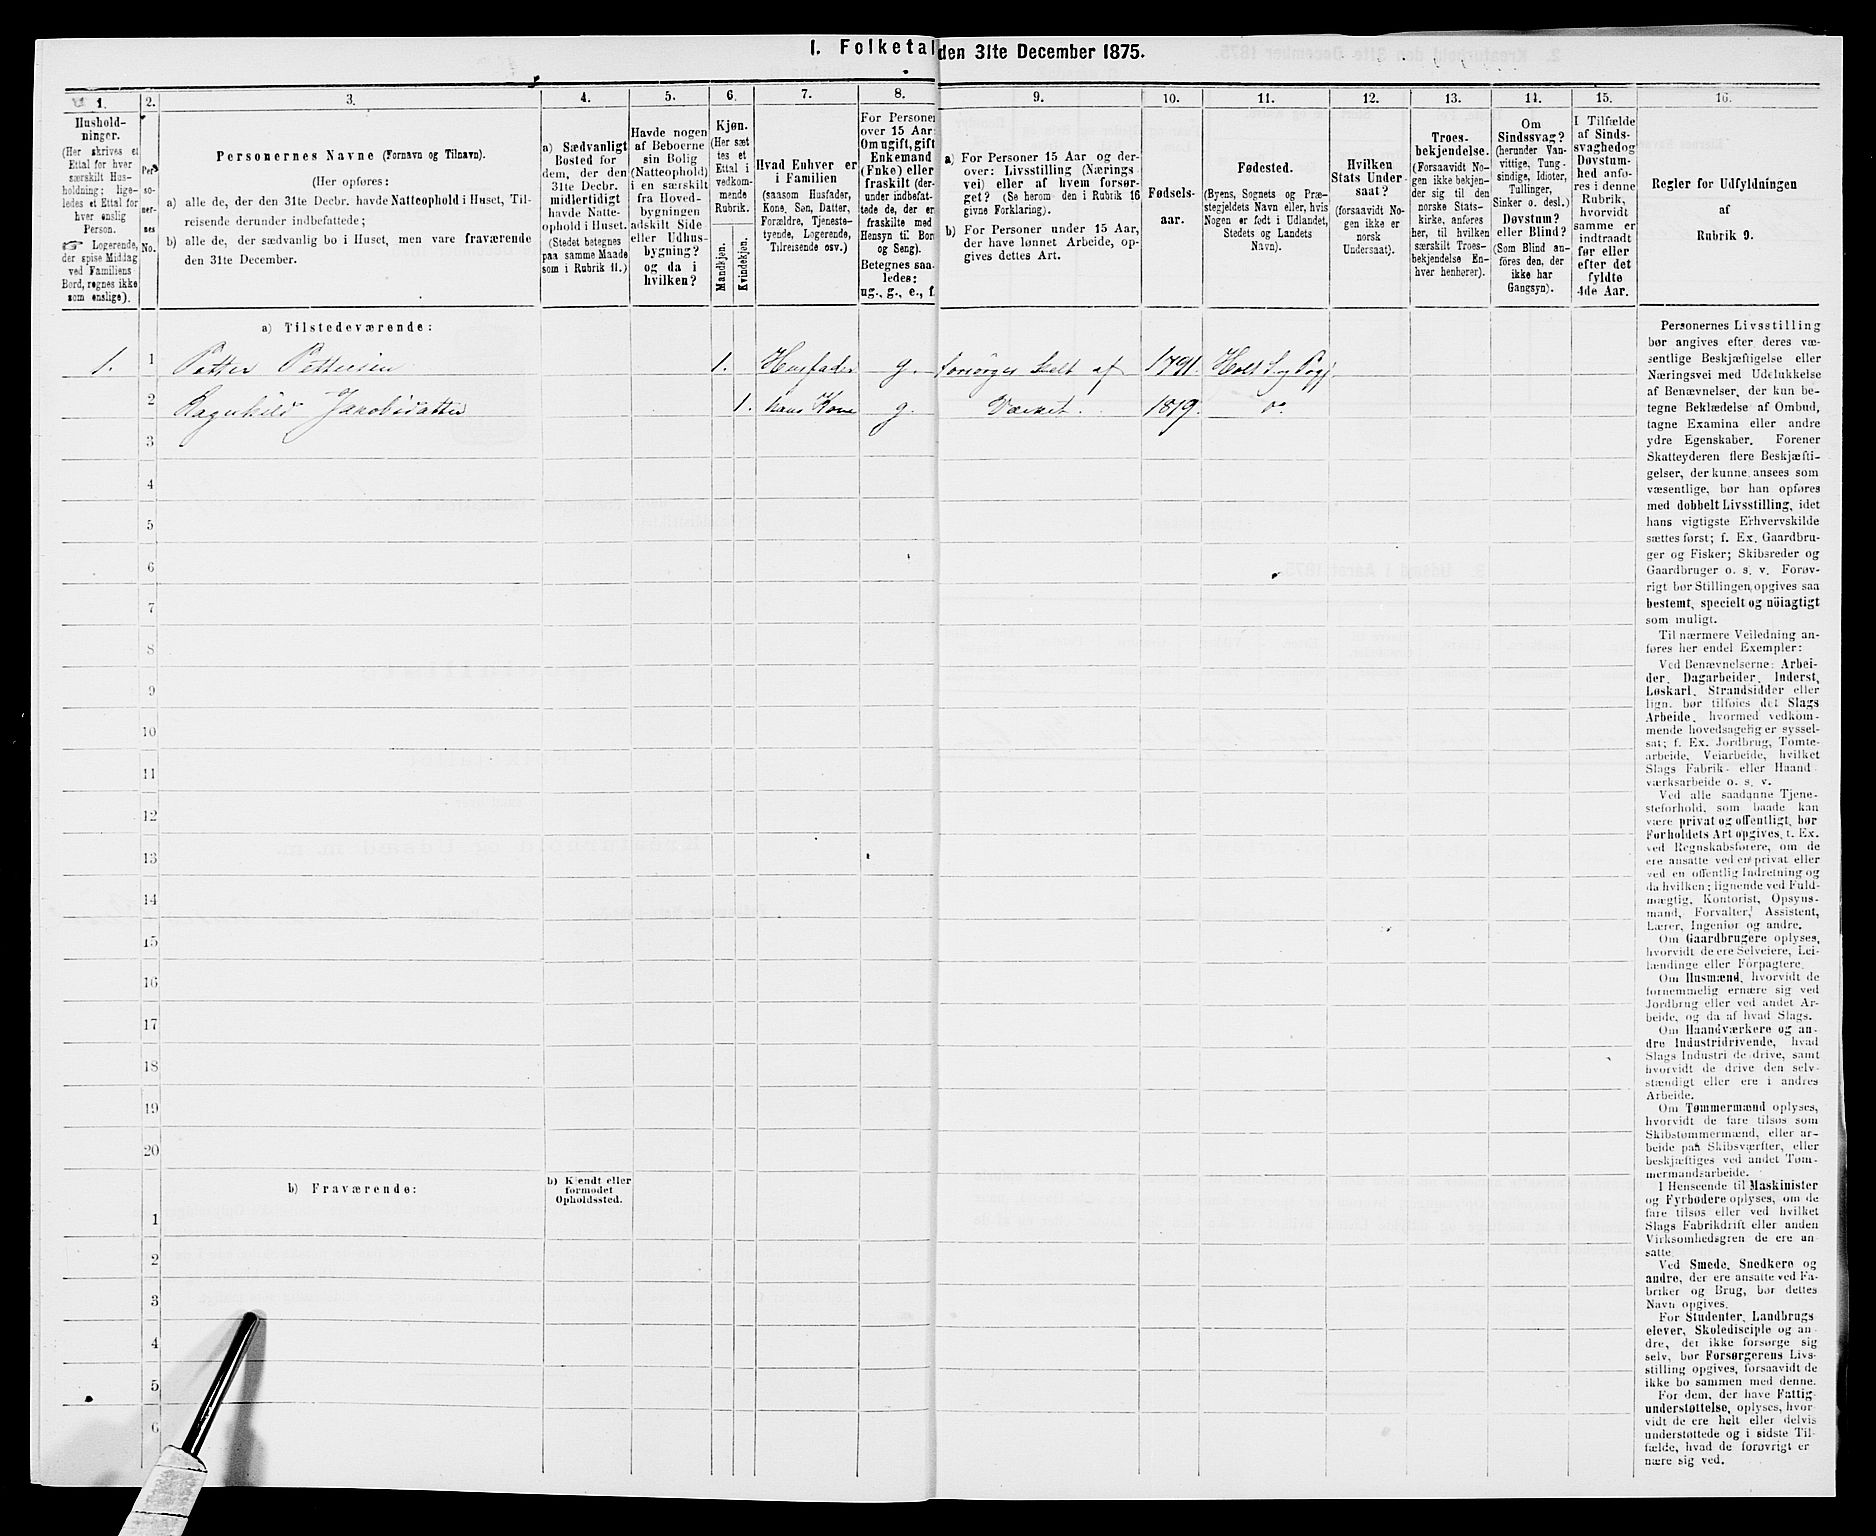 1. Folketal den 31te December 1875.
1. 2. 3. 4. 5. 6. 7. 8. 9. 10. 11. 12. 13. 14. 15. 16.
Hushold-
ninger.
(Her skrives et
Ettal for hver
særskilt Hus-
holdning; lige-
ledes et Ettal for
hver enslig
Person.
Logerende,
der spise Middag
ved Familiens
Bord, regnes ikke
som enslige).
Per
so-
ner-
nes
No.
Personernes Navne (Fornavn og Tilnavn).
(Her opføres:
a) alle de, der den 31te Decbr. havde Natteophold i Huset, Til-
reisende derunder indbefattede;
b) alle de, der sædvanlig bo i Huset, men vare fraværende
den 31te December.
a) Sædvanligt
Bosted for
dem, der den
31te Decbr.
midlertidigt
havde Natte-
ophold i Huset.
(Stedet betegnes
paa samme Maade
som i Rubrik 11.)
Havde nogen
af Beboerne
sin Bolig
(Natteophold)
i en særskilt
fra Hoved-
bygningen
adskilt Side
eller Udhus-
bygning?
og da i
hvilken?
Kjøn.
(Her sæt
tes et
Ettal i
vedkom-
mende
Rubrik.
Mandkjøn.
Kvindekjøn.
Hvad Enhver er
i Familien
(saasom Husfader,
Kone, Søn, Datter,
Forældre, Tjeneste-
tyende, Logerende,
Tilreisende osv.)
For Personer
over 15 Aar:
Om ugift, gift
Enkemand
(Enke) eller
fraskilt (der-
under indbefat-
tede de, der er
fraskilte med
Hensyn til Bord
og Seng).
Betegnes saa-
ledes:
ug., g., e., f.
a) For Personer 15 Aar og der-
over: Livsstilling (Nærings
vei) eller af hvem forsør-
get? (Se herom den i Rubrik 16
givne Forklaring).
b) For Personer under 15 Aar,
der have lønnet Arbeide, op-
gives dettes Art.
Fødsels-
aar.
Fødested.
(Byens, Sognets og Præ-
stegjeldets Navn eller, hvis
Nogen er født i Udlandet,
Stedets og Landets
Navn).
Hvilken
Stats Under-
saat?
(forsaavidt No-
gen ikke er
norsk
Undersaat).
Troes-
bekjendelse.
(Forsaavidt No-
gen ikke bekjen-
der sig til den
norske Stats-
kirke, anføres
her, til hvilken
særskilt Troes-
bekjendelse En-
hver henhører).
Om
Sindssvag?
(herunder Van-
vittige, Tung-
sindige, Idioter,
Tullinger,
Sinker o. desl.)
Døvstum?
eller Blind?
(Som Blind an-
føres den, der
ikke har
Gangsyn).
I Tilfælde
af Sinds-
svaghed og
Døvstum-
hed anfø-
res i denne
Rubrik,
hvorvidt
samme er
indtraadt
før eller
efter det
fyldte
4de Aar.
Regler for Udfyldningen
af
Rubrik 9.
a) Tilstedeværende:
1. 1 Petter Pettersen 1. Husfader g. forsørges helt af 1791. Holt S. og Pgj.
2 Ragnhild Jakobsdatter 1. hans Kone g. Værket. 1819. do
3
4
5
6
7
8
9
10
11
12
13
14
15
16
17
18
19
20
b) Fraværende:
b) Kjendt eller
formodet
Opholdssted.
1
2
3
4
5
6
Personernes Livsstilling
bør angives efter deres væ-
sentlige Beskjæftigelse eller
Næringsvei med Udelukkelse
af Benævnelser, der kun be-
tegne Beklædelse af Ombud,
tagne Examina eller andre
ydre Egenskaber. Forener
Skatteyderen flere Beskjæfti-
gelser, der kunne ansees som
væsentlige, bør han opføres
med dobbelt Livsstilling, idet
hans vigtigste Erhvervskilde
sættes først; f. Ex. Gaardbru-
ger og Fisker; Skibsreder og
Gaardbruger o. s. v. Forøv-
rigt bør Stillingen opgives saa
bestemt, specielt og nöiagtigt
som muligt.
Til nærmere Veiledning an-
føres her endel Exempler:
Ved Benævnelserne: Arbei-
der, Dagarbeider, Inderst,
Løskarl, Strandsidder eller
lign. bør tilføies det Slags
Arbeide, hvormed vedkom-
mende hovedsagelig er syssel-
sat; f. Ex. Jordbrug, Tomte-
arbeide, Veiarbeide, hvilket
Slags Fabrik- eller Haand
værksarbeide o. s. v.
Ved alle saadanne Tjene-
steforhold, som baade kan
være privat og offentligt, bør
Forholdets Art opgives, f. Ex.
ved Regnskabsførere, om de
ere ansatte ved en privat eller
ved en offentlig Indretning og
da hvilken; lignende ved Fuld-
mægtig, Kontorist, Opsyns-
mand, Forvalter, Assistent,
Lærer, Ingeniør og andre.
Om Gaardbrugere oplyses,
hvorvidt de ere Selveiere, Lei-
lændinge eller Forpagtere.
Om Husmænd, hvorvidt de
fornemmelig ernære sig ved
Jordbrug eller ved andet Ar-
beide, og da af hvad Slags.
Om Haandværkere og an-
dre Industridrivende, hvad
Slags Industri de drive, samt
hvorvidt de drive den selv-
stændigt eller ere i andres
Arbeide.
Om Tømmermænd oplyses,
hvorvidt de fare tilsøs som
Skibstømmermænd, eller ar-
beide paa Skibsværfter, eller
beskjæftiges ved andet Tøm-
mermandsarbeide.
I Henseende til Maskinister
og Fyrbødere oplyses, om de
fare tilsøs eller ved hvilket
Slags Fabrikdrift eller anden
Virksomhedsgren de ere an-
satte.
Ved Smede, Snedkere og
andre, der ere ansatte ved Fa-
briker og Brug, bør dettes
Navn opgives.
For Studenter, Landbrugs
elever, Skoledisciple og an-
dre, der ikke forsørge sig
selv, bør Forsørgerens Livs-
stilling opgives, forsaavidt de
ikke bo sammen med denne.
For dem, der have Fattig-
understøttelse, oplyses, hvor-
vidt de ere helt eller delvis
understøttede og i sidste Til-
fælde, hvad de forøvrigt er
nære sig ved.